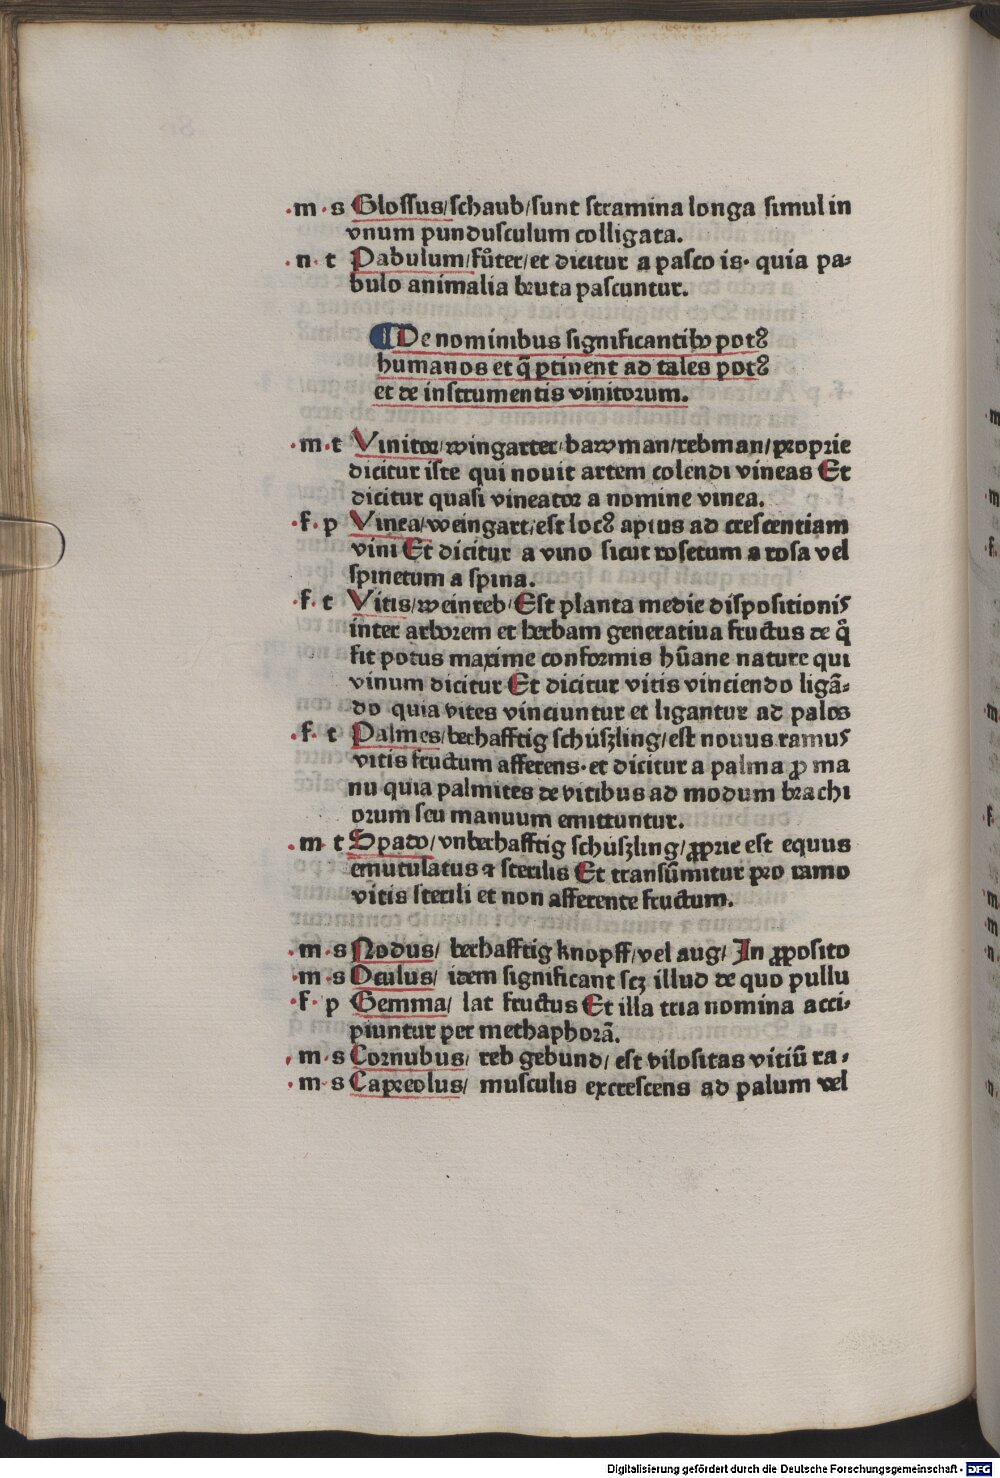 .m.s Glossus/schaub/sunt stramina longa simul in
vnum pundusculum colligata.
.n.t Pabulum/fůter/et dicitur a pasco is. quia pa=
bulo animalia bruta pascuntur.
De nominibus significantibꝰ potꝰ
humanos et q̃ ꝑtinent ad tales potꝰ
et de instrumentis vinitorum.
.m.t Vinitor/wingarter/bawman/rebman/proprie
dicitur iste qui nouit artem colendi vineas Et
dicitur quasi vineator a nomine vinea.
.f.p Vinea/weingart/est locꝰ aptus ad crescentiam
vini Et dicitur a vino sicut rosetum a rosa vel
spinetum a spina.
.f.t Vitis/weinreb/Est planta medie dispositionis
inter arborem et herbam generatiua fructus de q̃
fit potus maxime conformis hũane nature qui
vinum dicitur Et dicitur vitis vinciendo ligã=
do quia vites vinciuntur et ligantur ad palos
.f.t Palmes/berhafftig schúszling/est nouus ramus
vitis fructum afferens.et dicitur a palma ꝓ ma
nu quia palmites de vitibus ad modum brachi
orum seu manuum emittuntur.
.m t Spado/vnberhafftig schúszling/ꝓprie est equus
emutulatus ⁊ sterilis Et transũmitur pro ramo
vitis sterili et non afferente fructum.
.m.s Nodus/ berhafftig knopff/vel aug/ In ꝓposito
.m.s Oculus/ idem significant scꝫ illud de quo pullu
.f.p Gemma/ lat fructus Et illa tria nomina acci=
piuntur per methaphorã.
.m.s Cornubus/ reb gebund/est vilositas vitiũ ra=
.m.s Capreolus/ musculis excrescens ad palum vel
Digitalisierung gefördert durch die Deutsche Forschungsgemeinschaft - DFG